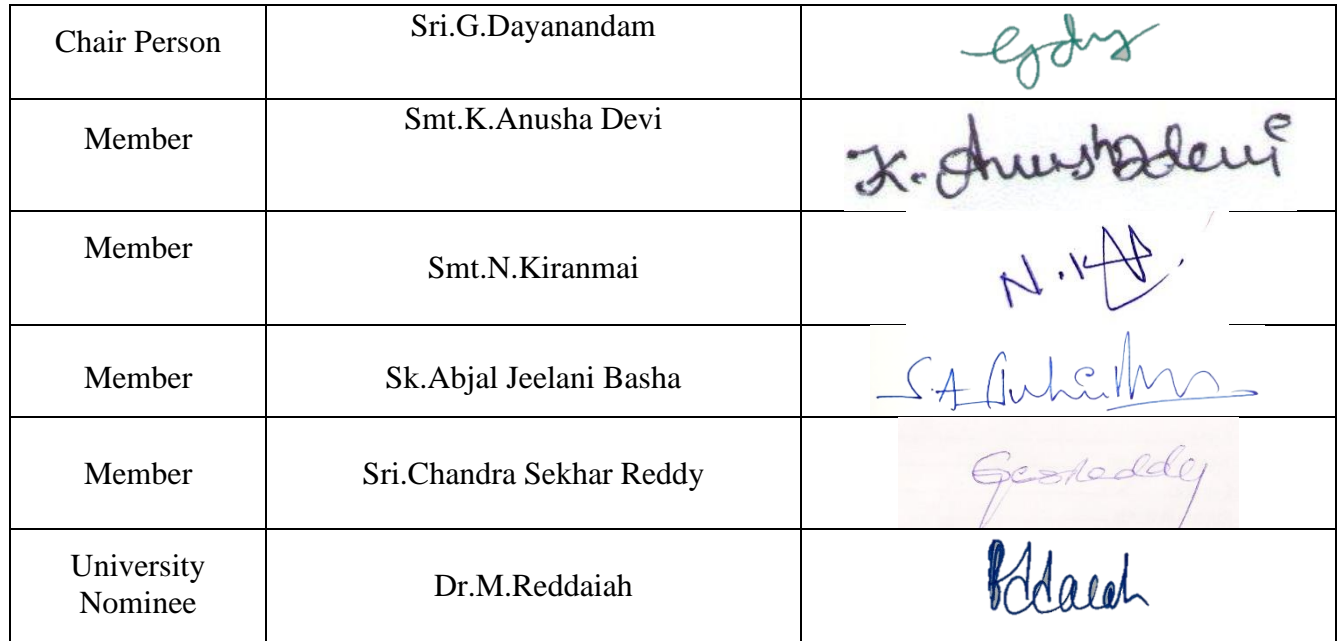 Chair Person
Sri.G.Dayanandam
Member
Smt.K.Anusha Devi
K. Anusha Devi
Member
Smt.N.Kiranmai
Member
Sk.Abjal Jeelani Basha
Member
Sri.Chandra Sekhar Reddy
University
Nominee
Dr.M.Reddaiah